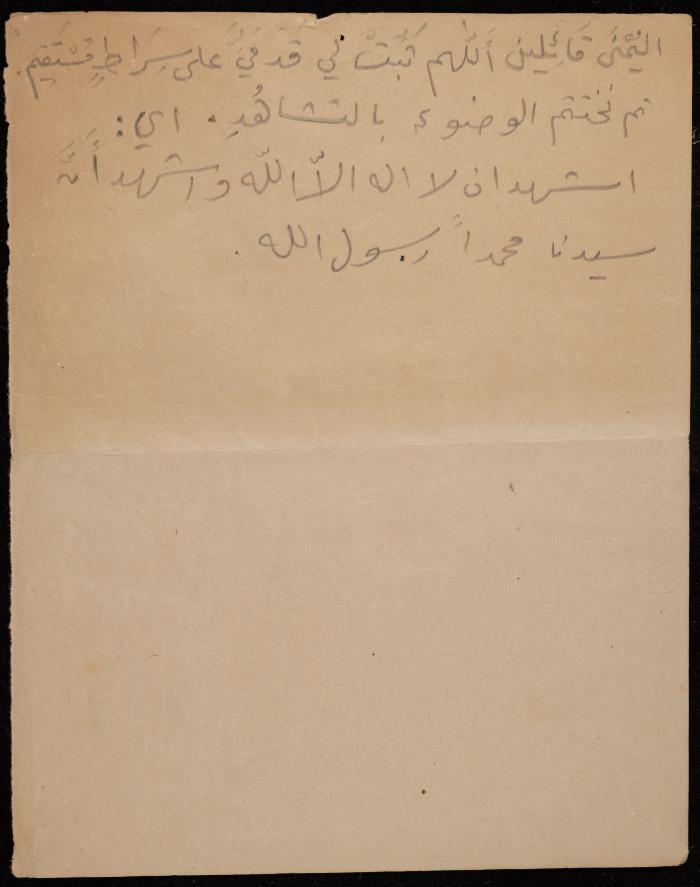 اليُمْنَى قَائِلين أَللّهم ثَبِّتْ لي قَدَمَيَّ على سِرَاطٍ مُسْتَقِيم.
ثم نختتم الوضوء بالتشاهُدِ. اي:
اشهد ان لا اله الاّ اللّه واشهد أَنَّ
سيدنا محمداً رسول الله.